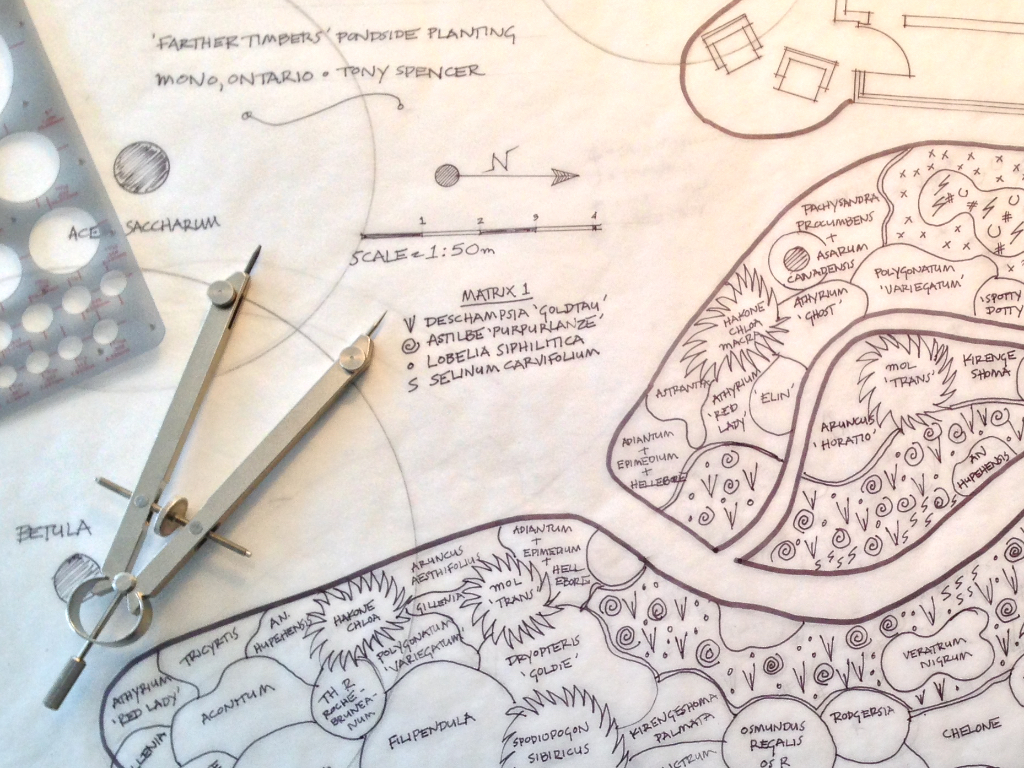 'FARTHER TIMBERS' PONDSIDE PLANTING
MONO, ONTARIO • TONY SPENCER
N
1 2 3 4
SCALE = 1:50m
SACCHARUM
MATRIX 1
V DESCHAMPSIA 'GOLDTAU'
ASTILBE 'PURPURLANZE'
LOBELIA SIPHILITICA
S SELINUM CARVIFOLIUM
PACHYSANDRA
PROCUMBENS
+
ASARUM
CANADENSIS
POLYGONATUM
'VARIEGATUM'
'SPOTTY
DOTTY'
ATHYRIUM
'GHOST'
HAKONE
CHLOA
MACRA
ASTRANTIA
ATHYRIUM
'RED
LADY'
'ELIN'
ADIANTUM
+
EPIMEDIUM
+
HELLEBORE
MOL
'TRANS'
KIRENGE
SHOMA
ARUNCUS
'HORATIO'
AN
HUPEHENSIS
BETULA
ADIANTUM
+
EPIMEDIUM
+
HELL
EBORE
ARUNCUS
AESTHIFOLIUS
MOL
'TRANS'
GILLENIA
HAKONE
CHLOA
AN.
HUPEHENSIS
TRICYRTIS
POLYGONATUM
'VARIEGATUM'
DRYOPTERIS
'GOLDIE'
ATHYRIUM
'RED LADY'
ACONITUM
TH R
ROCHE-
BRUNEA-
NUM
FILIPENDULA
SPODIOPOGON
SIBIRICUS
KIRENGESHOMA
PALMATA
OSMUNDUS
REGALIS
OS R
RODGERSIA
VERATRUM
NIGRUM
CHELONE